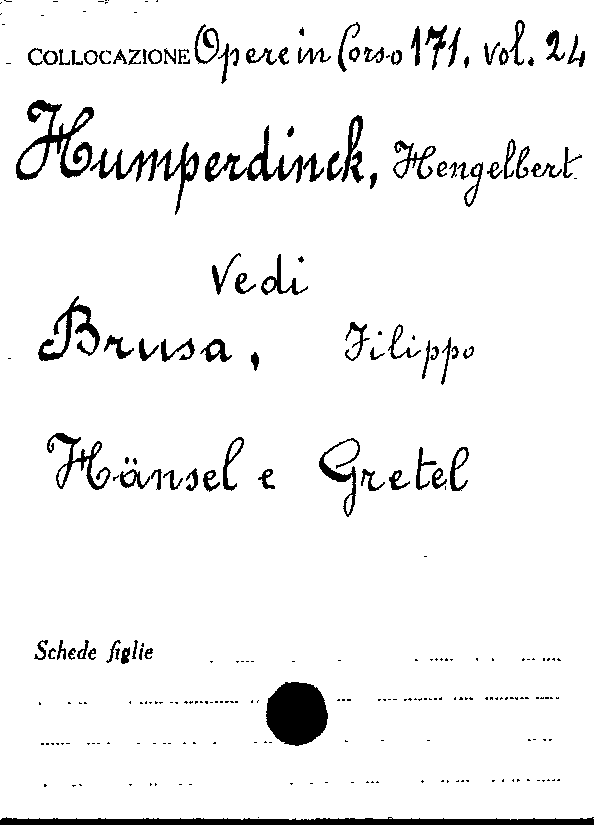 COLLOCAZIONE Opere in Corso 171. vol. 24
Humperdinck, Hengelbert
Vedi
Brusa, Filippo
Hänsel e Gretel
Schede figlie